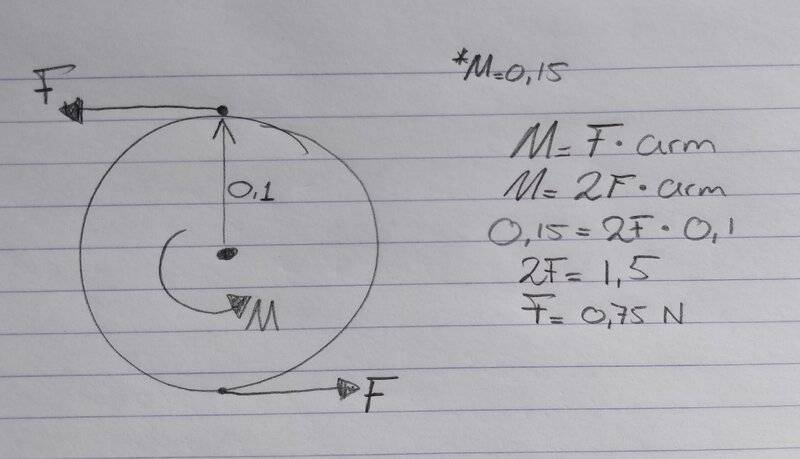 *M=0,15
F
M= F · arm
M= 2F · arm
0,1
0,15 = 2F · 0,1
2F= 1,5
M
F= 0,75 N
F